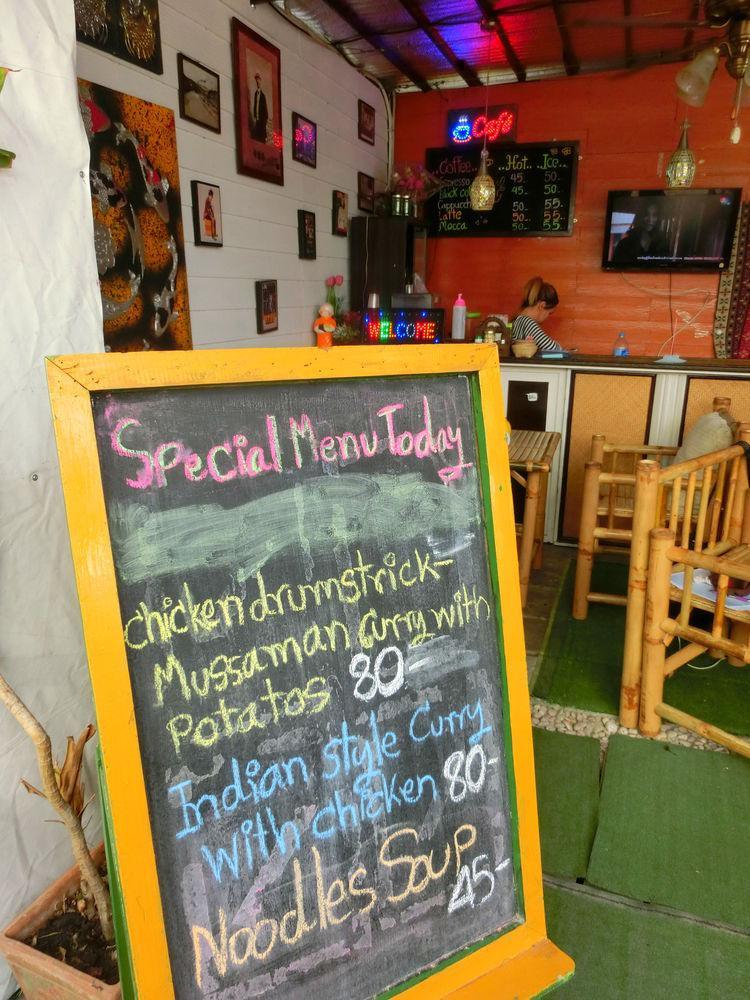 Café
Coffee.. Hot.. Ice..
Espresso 45. 50.
Black co 45. 50.
Cappuccin 50.. 55..
Latte 50.. 55
Mocca 50.. 55
WELCOME
Special Menu Today
chicken drumstrick-
Mussaman Curry with
Potatos 80-
Indian style Curry
with chicken 80-
Noodles Soup
45-